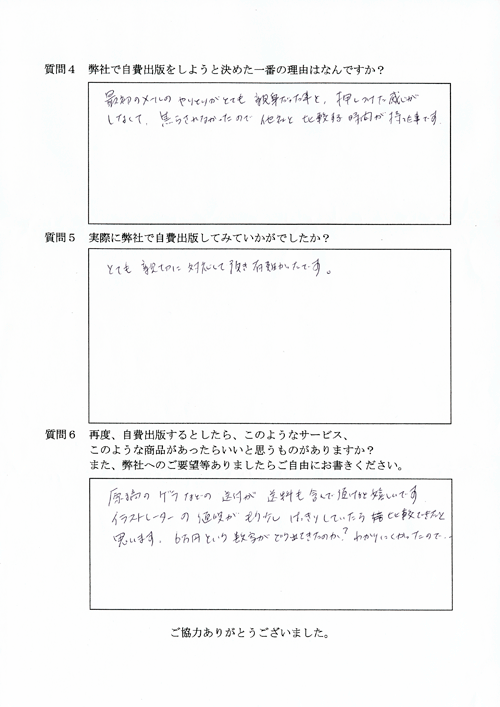 質問４ 弊社で自費出版をしようと決めた一番の理由はなんですか？
最初のメールのやりとりがとても親身だった事と、押しつけた感じが
しなくて、焦らされなかったので 他社と比較する時間が持てた事です
質問５ 実際に弊社で自費出版してみていかがでしたか？
とても親切に対応して頂き有難かったです。
質問６ 再度、自費出版するとしたら、このようなサービス、
このような商品があったらいいと思うものがありますか？
また、弊社へのご要望等ありましたらご自由にお書きください。
原稿のゲラなどの送付が送料も含んで頂けると嬉しいです
イラストレーターの値段がもう少しはっきりしていたら 比較できたと
思います。6万円という数字がどう出てきたのか？わかりにくかったので...
ご協力ありがとうございました。